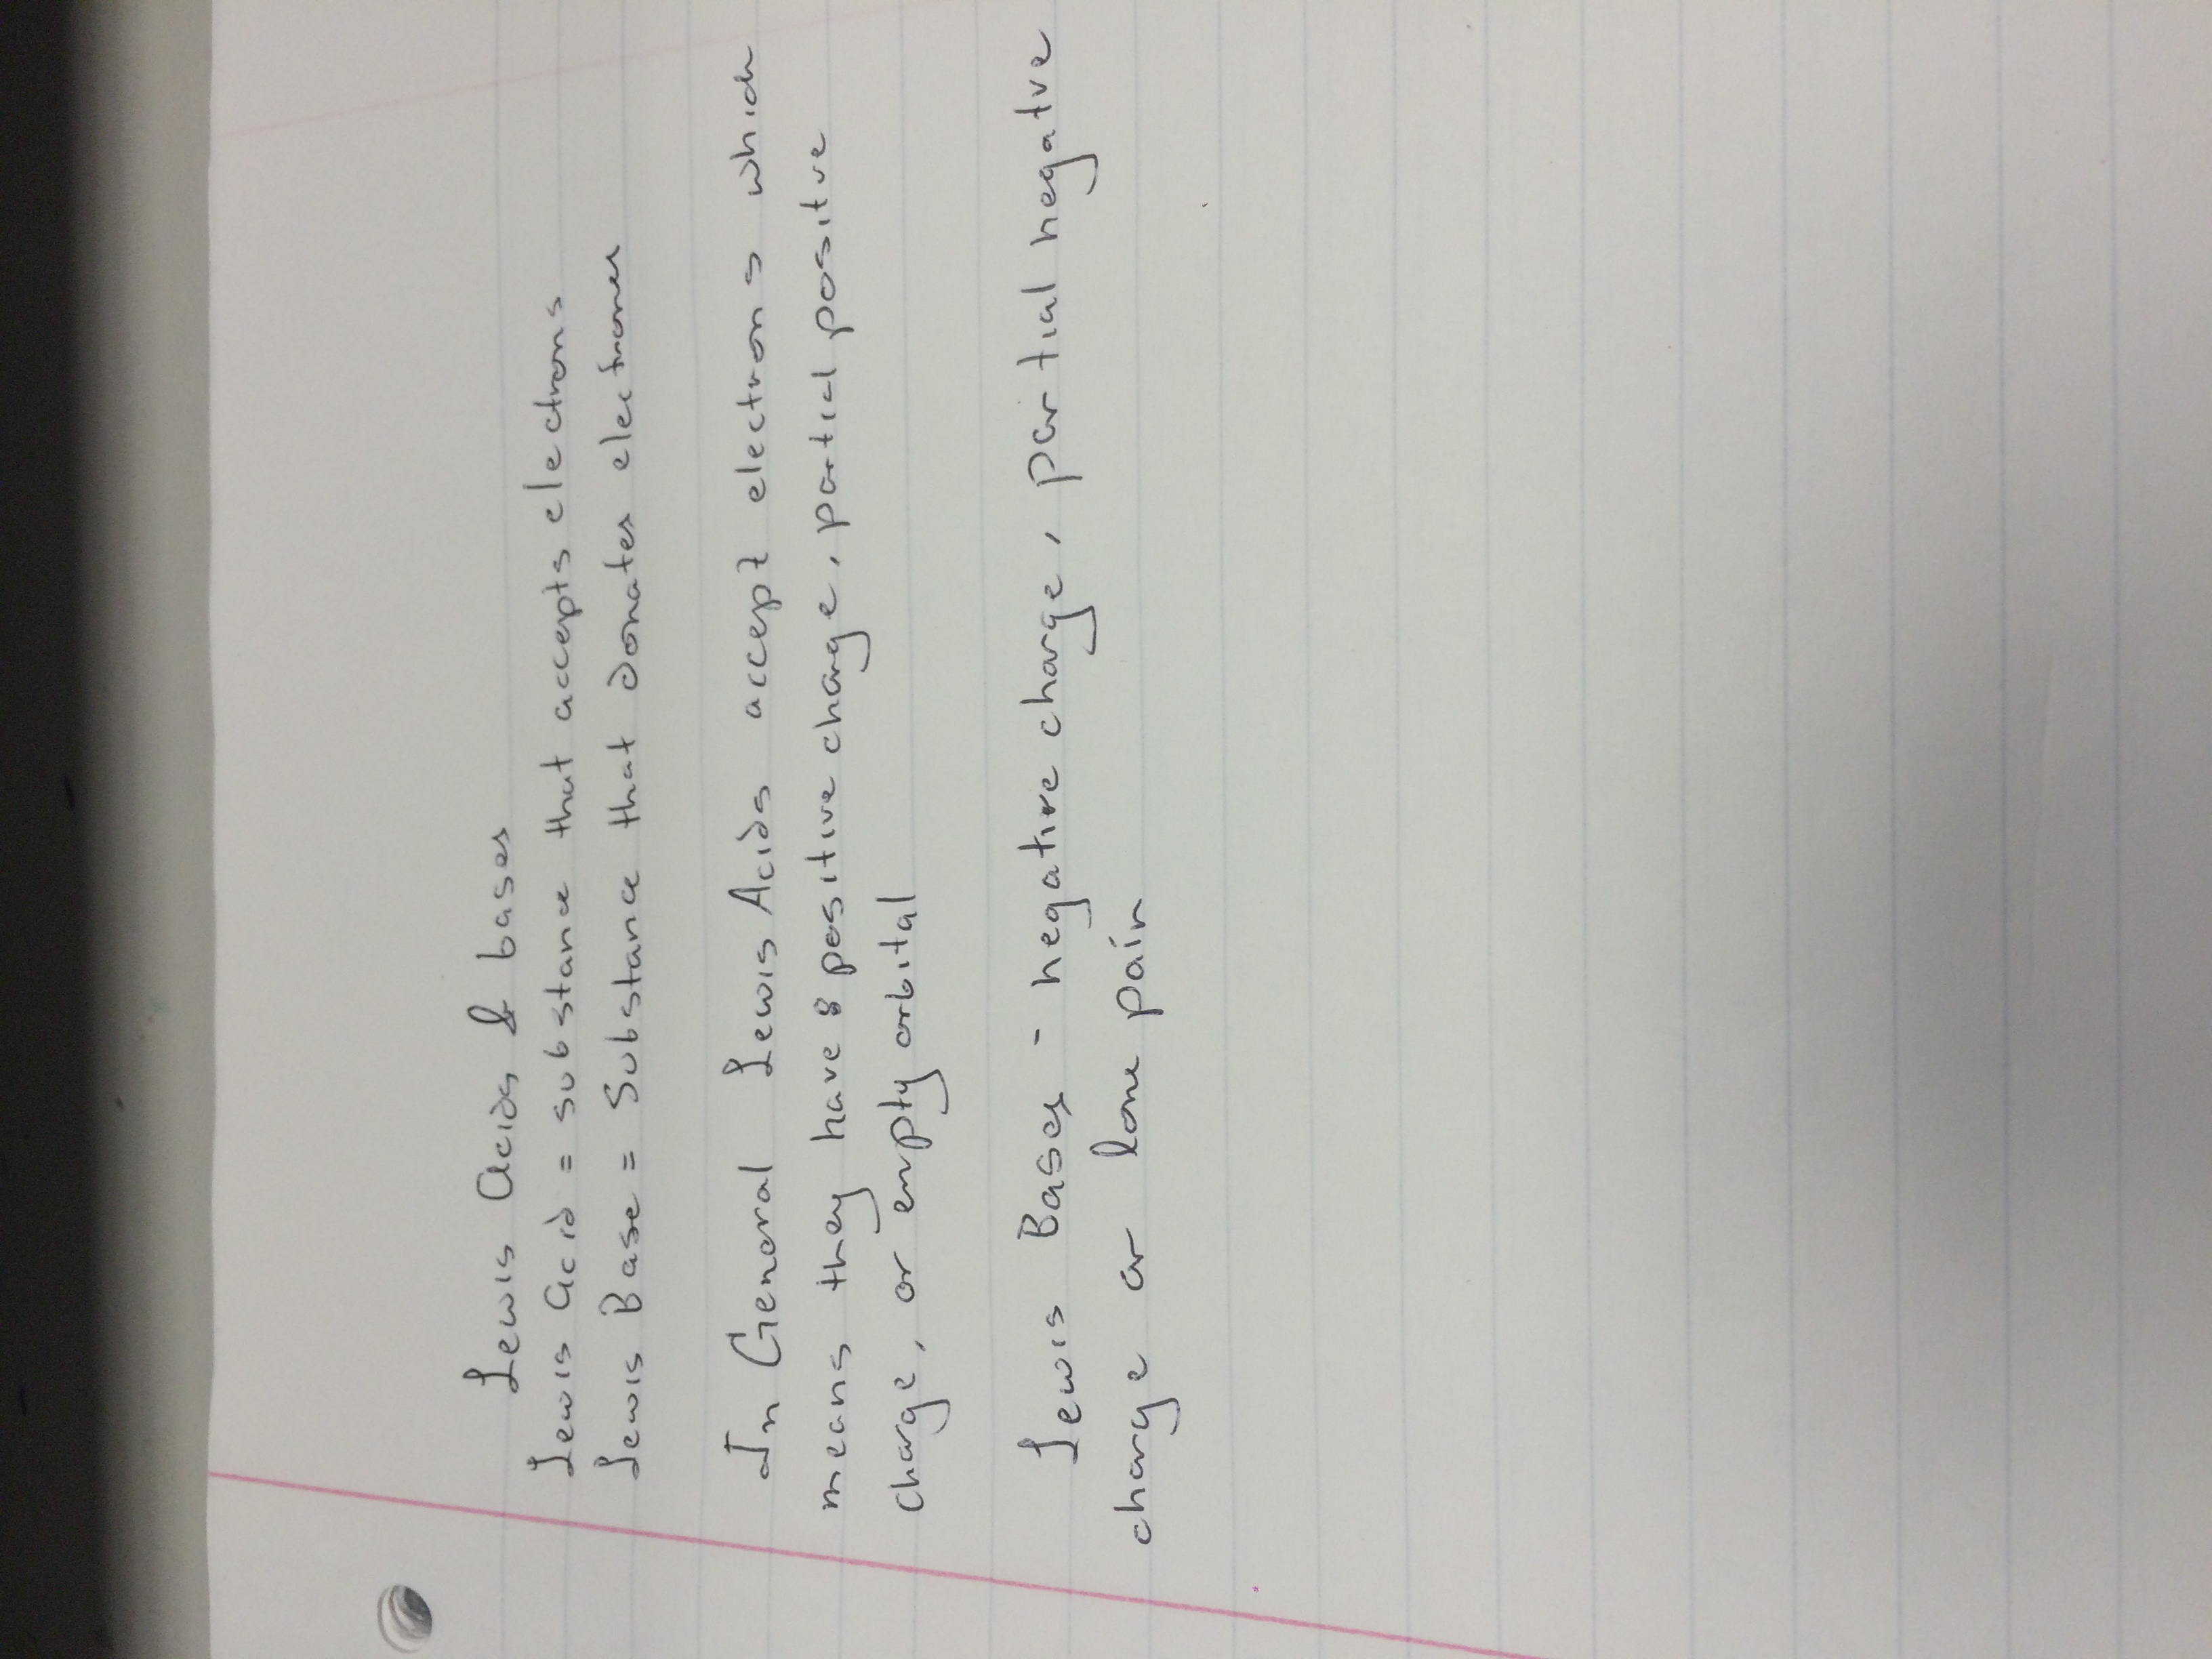 Lewis Acids & bases
Lewis Acid = substance that accepts electrons
Lewis Base = Substance that donates electrones
In General Lewis Acids accept electrons which
means they have 8 positive charge, partial positve
charge, or empty orbital
Lewis Bases - negative charge, partial negatve
charge or lone pair